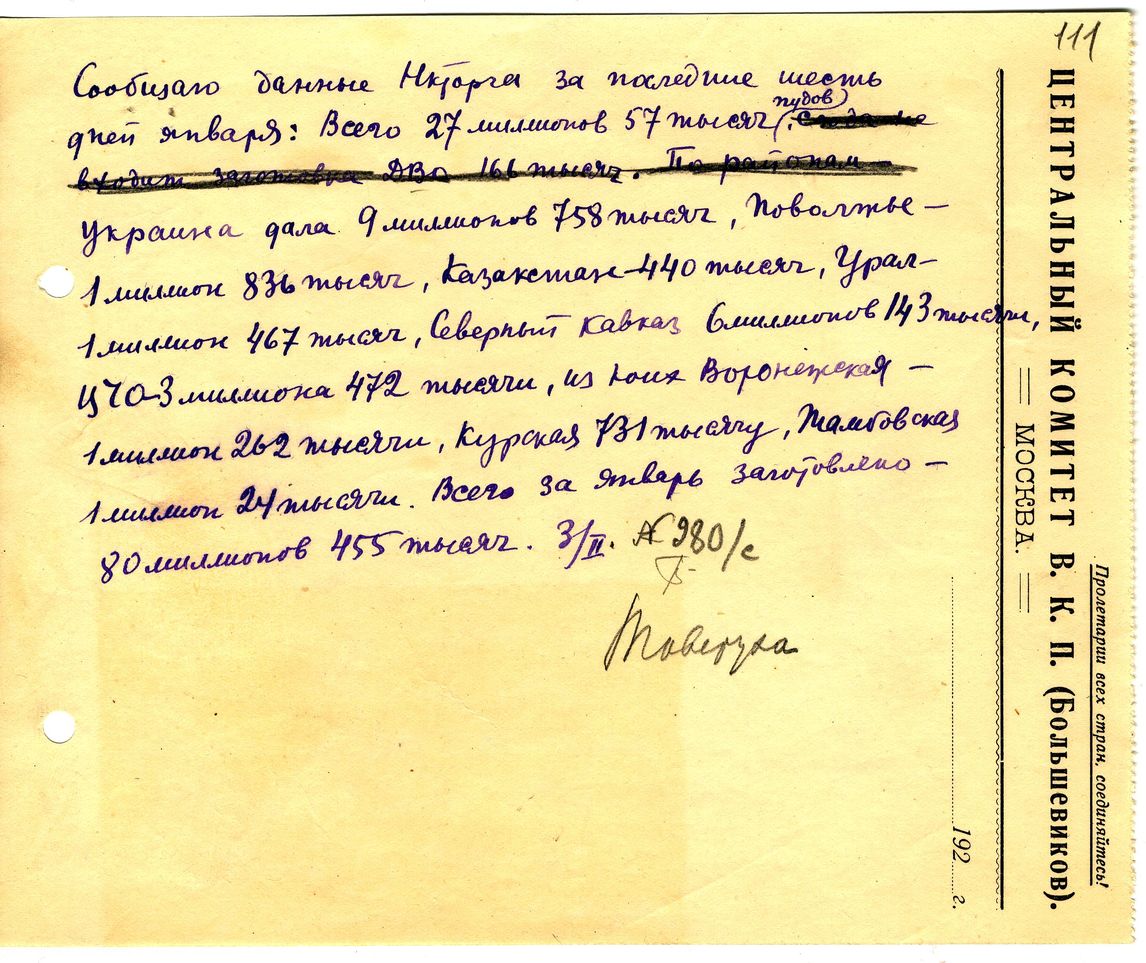 111
Сообщаю данные Нкторга за последние шесть
дней января: Всего 27 миллионов 57 тысяч (пудов). Сюда не
входит заготовка ДВО 166 тысяч. По районам —
Украина дала 9 миллионов 758 тысяч, Поволжье —
1 миллион 836 тысяч, Казакстан - 440 тысяч, Урал -
1 миллион 467 тысяч, Северный Кавказ 6 миллионов 143 тысячи,
ЦЧО - 3 миллиона 472 тысячи, из коих Воронежская —
1 миллион 262 тысячи, Курская 731 тысячу, Тамбовская
1 миллион 24 тысячи. Всего за январь заготовлено —
80 миллионов 455 тысяч. 3/II. № 980/с
Товстуха
Пролетарии всех стран, соединяйтесь!
ЦЕНТРАЛЬНЫЙ КОМИТЕТ В. К. П. (Большевиков).
МОСКВА.
192 г.